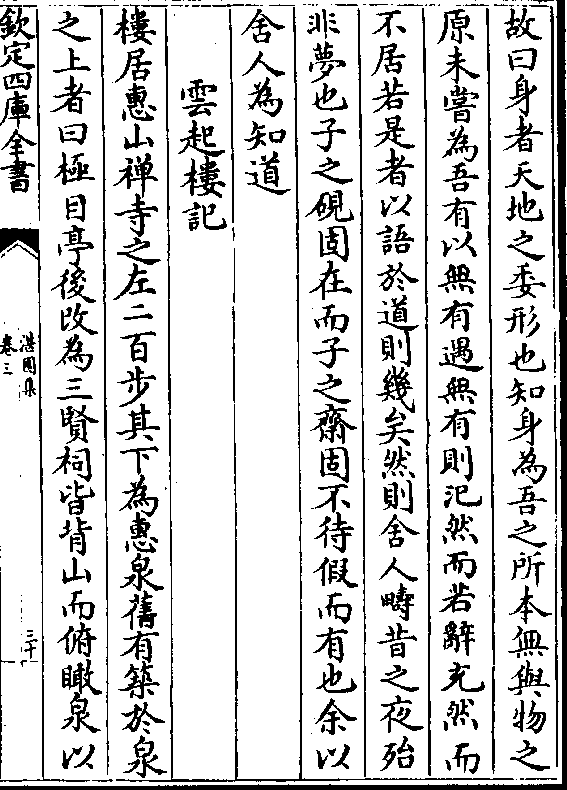 故曰身者天地之委形也知身為吾之所本無與物之
原未嘗為吾有以無有遇無有則汜然而若辭充然而
不居若是者以語於道則幾矣然則舍人疇昔之夜殆
非夢也子之硯固在而子之齋固不待假而有也余以
舍人為知道
雲起樓記
樓居惠山禅寺之左二百步其下為惠泉舊有築於泉
之上者曰極目亭後改為三賢祠皆背山而俯瞰泉以
欽定四庫全書
湛園集
卷三
三十